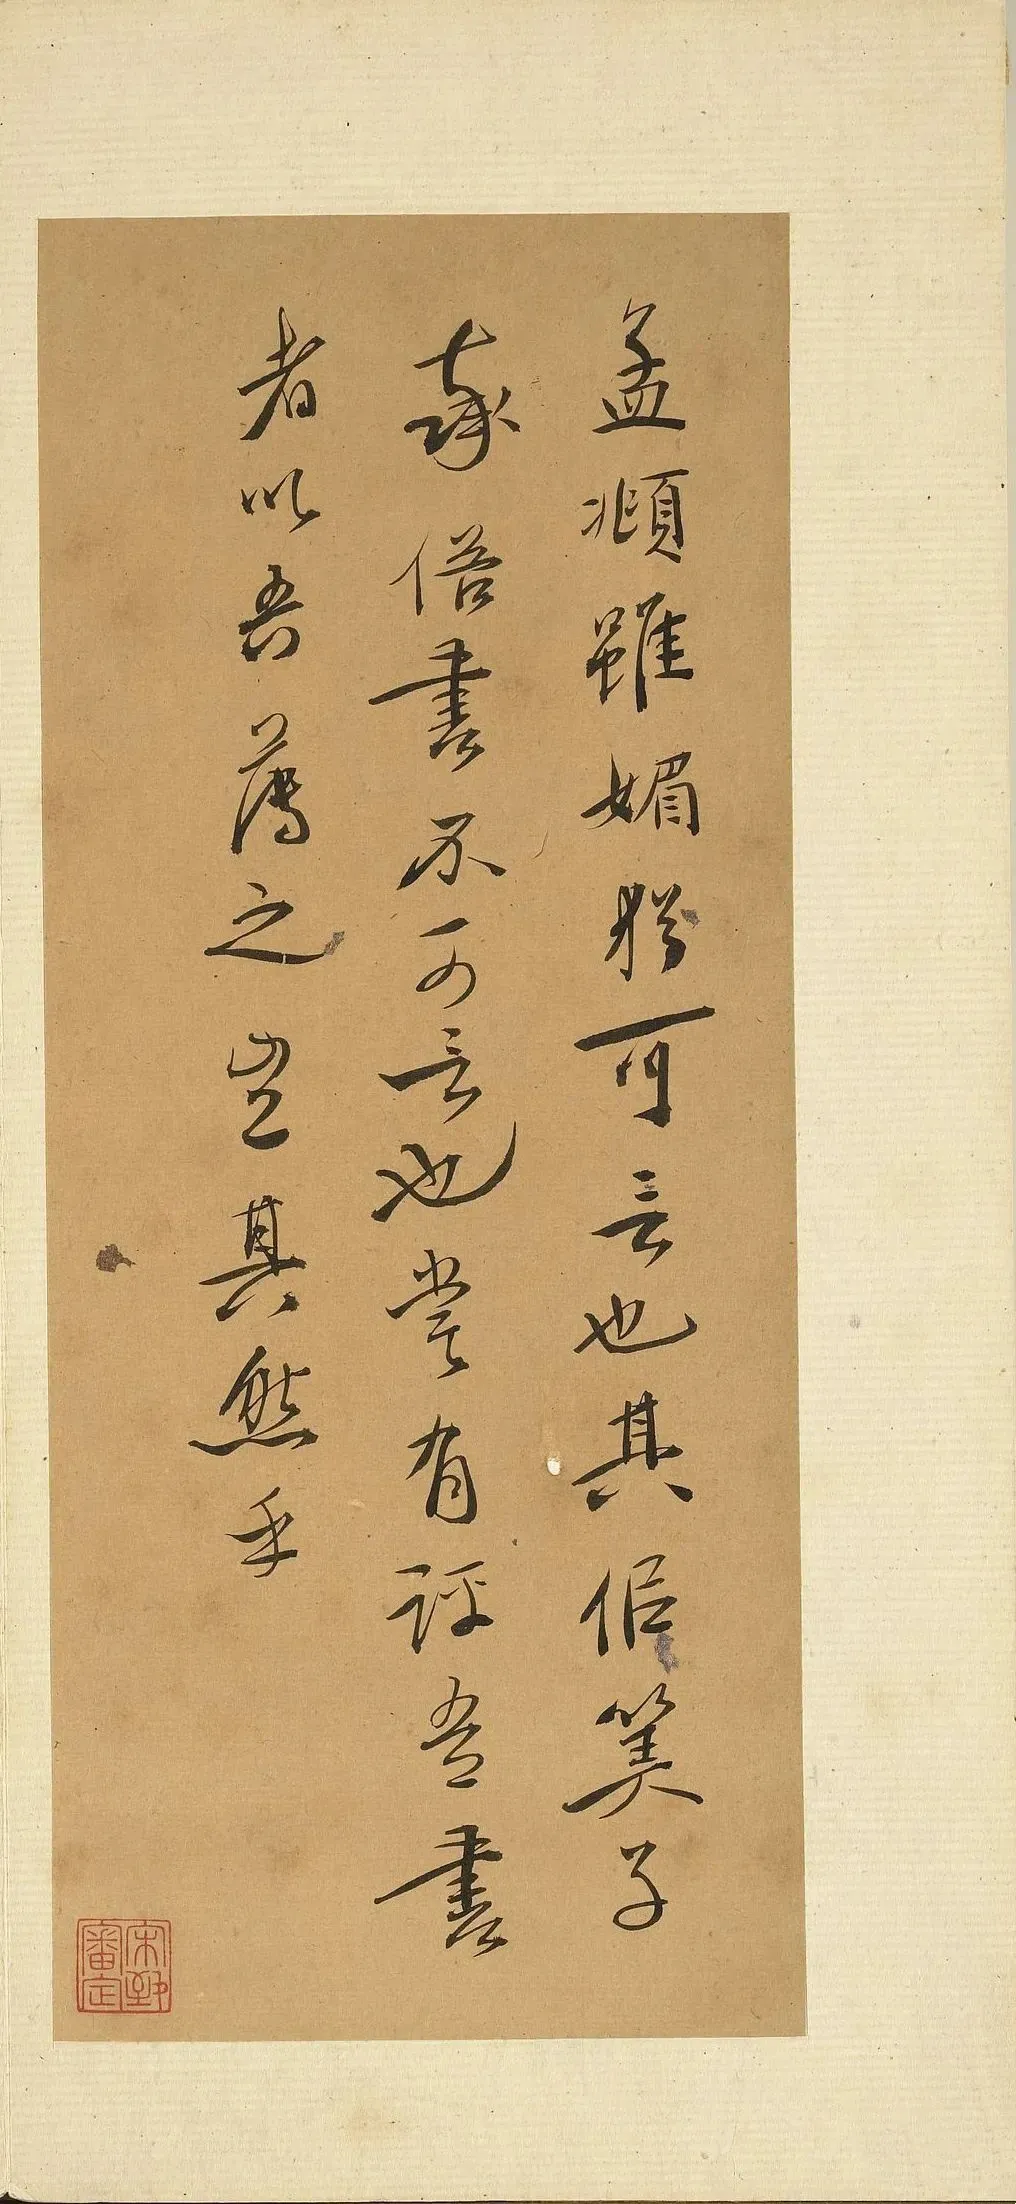 孟頫雖媚猶可言也其佀筭子
率俗書不可言也嘗有評吾書
者以吾薄之豈其然乎
宋致
審定